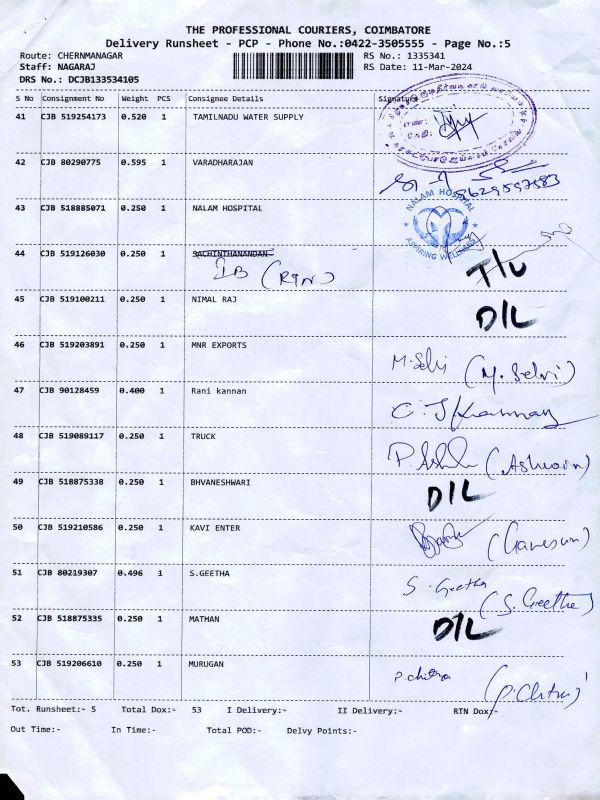 THE PROFESSIONAL COURIERS, COIMBATORE
Delivery Runsheet - PCP - Phone No.:0422-3505555 - Page No.:5
Route: CHERNMANAGAR RS No.: 1335341
Staff: NAGARAJ RS Date: 11-Mar-2024
DRS No.: DCJB133534105
S No Consignment No Weight PCS Consignee Details Signature
41 CJB 519254173 0.520 1 TAMILNADU WATER SUPPLY
42 CJB 80290775 0.595 1 VARADHARAJAN
9629597583
43 CJB 518885071 0.250 1 NALAM HOSPITAL
NALAM HOSPITAL
ASPIRING WELLNESS
44 CJB 519126030 0.250 1 SACHINTHANANDAN
IB (RTN) T/L
45 CJB 519100211 0.250 1 NIMAL RAJ D/L
46 CJB 519203891 0.250 1 MNR EXPORTS M.Selvi (M. Selvi)
47 CJB 90128459 0.400 1 Rani kannan C. J Kannan
48 CJB 519089117 0.250 1 TRUCK (Ashwin)
49 CJB 518875338 0.250 1 BHVANESHWARI D/L
50 CJB 519210586 0.250 1 KAVI ENTER (Ganesan)
51 CJB 80219307 0.496 1 S.GEETHA S. Geetha (S. Geetha)
52 CJB 518875335 0.250 1 MATHAN D/L
53 CJB 519206610 0.250 1 MURUGAN P.chitra (P.Chitra)
Tot. Runsheet:- 5 Total Dox:- 53 I Delivery:- II Delivery:- RTN Dox:-
Out Time:- In Time:- Total POD:- Delvy Points:-